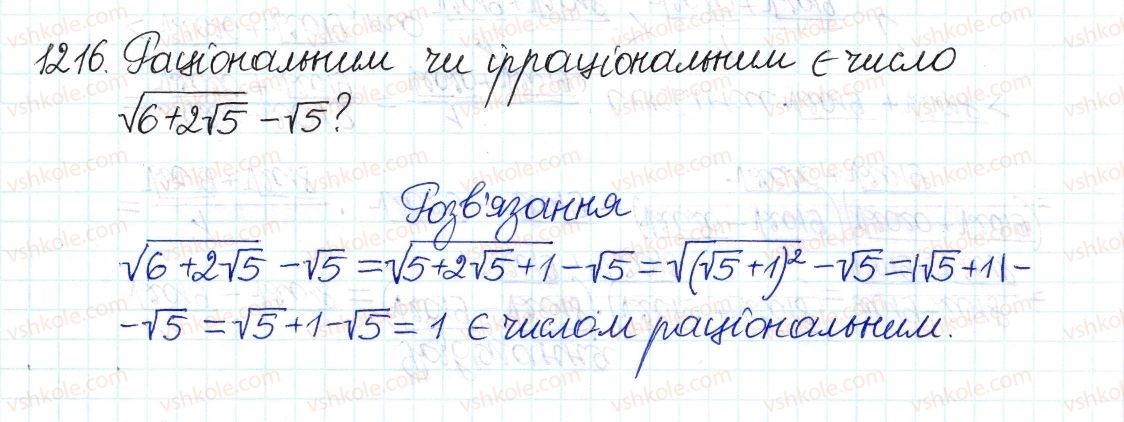 1216. Раціональним чи ірраціональним є число
√(6+2√5) - √5?
Розв'язання
√(6+2√5) - √5 = √(5+2√5+1) - √5 = √((√5+1)²) - √5 = |√5+1| -
- √5 = √5+1-√5 = 1 є числом раціональним.
vshkole.com